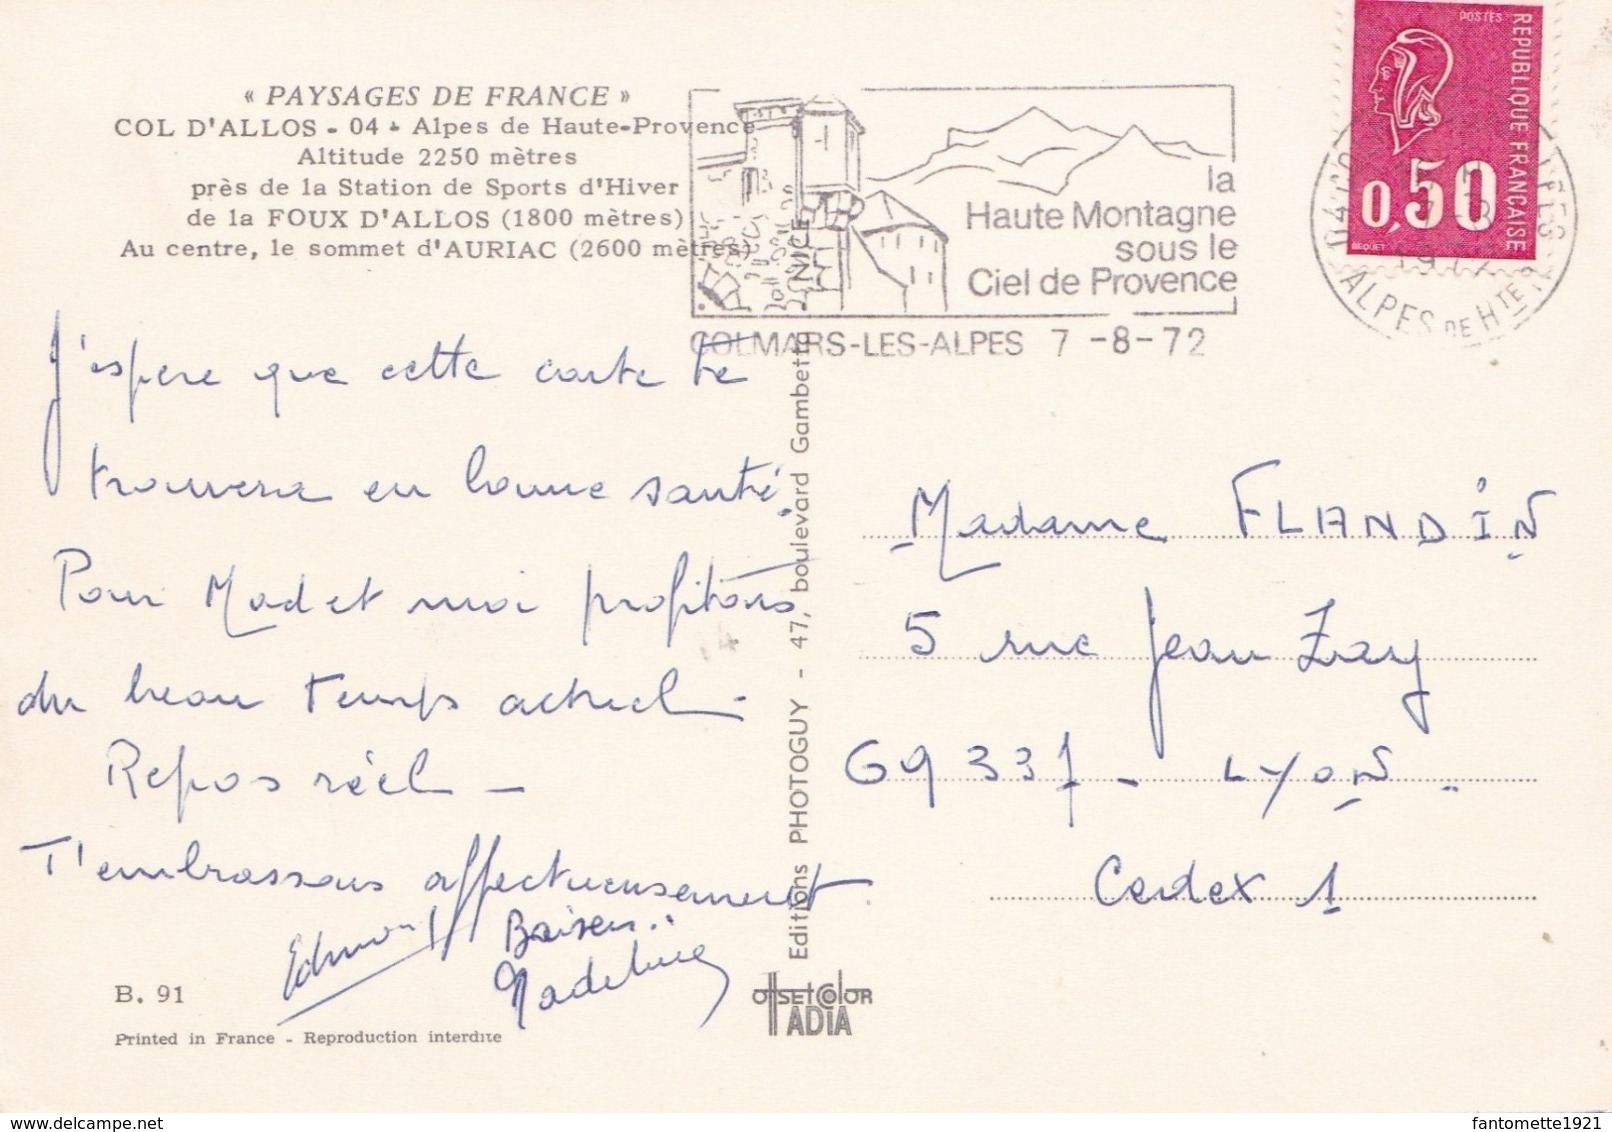 « PAYSAGES DE FRANCE »
COL D'ALLOS - 04 - Alpes de Haute-Provence
Altitude 2250 mètres
près de la Station de Sports d'Hiver
de la FOUX D'ALLOS (1800 mètres)
Au centre, le sommet d'AURIAC (2600 mètres)
la
Haute Montagne
sous le
Ciel de Provence
COLMARS-LES-ALPES 7 -8-72
POSTES
REPUBLIQUE FRANÇAISE
0,50
BEQUET
1972
ALPES DE HTE
J'espère que cette carte te
trouvera en bonne santé.
Pour Mad et moi profitons
du beau temps actuel -
Repos réel -
T'embrassons affectueusement.
Edmond
Baisers..
Madeleine
Madame FLANDIN
5 rue Jean Zay
69337 - LYON .
Cedex 1
Editions PHOTOGUY - 47, boulevard Gambetta NICE
B. 91
Printed in France - Reproduction interdite
OFFSET COLOR
ADIA
fantomette1921